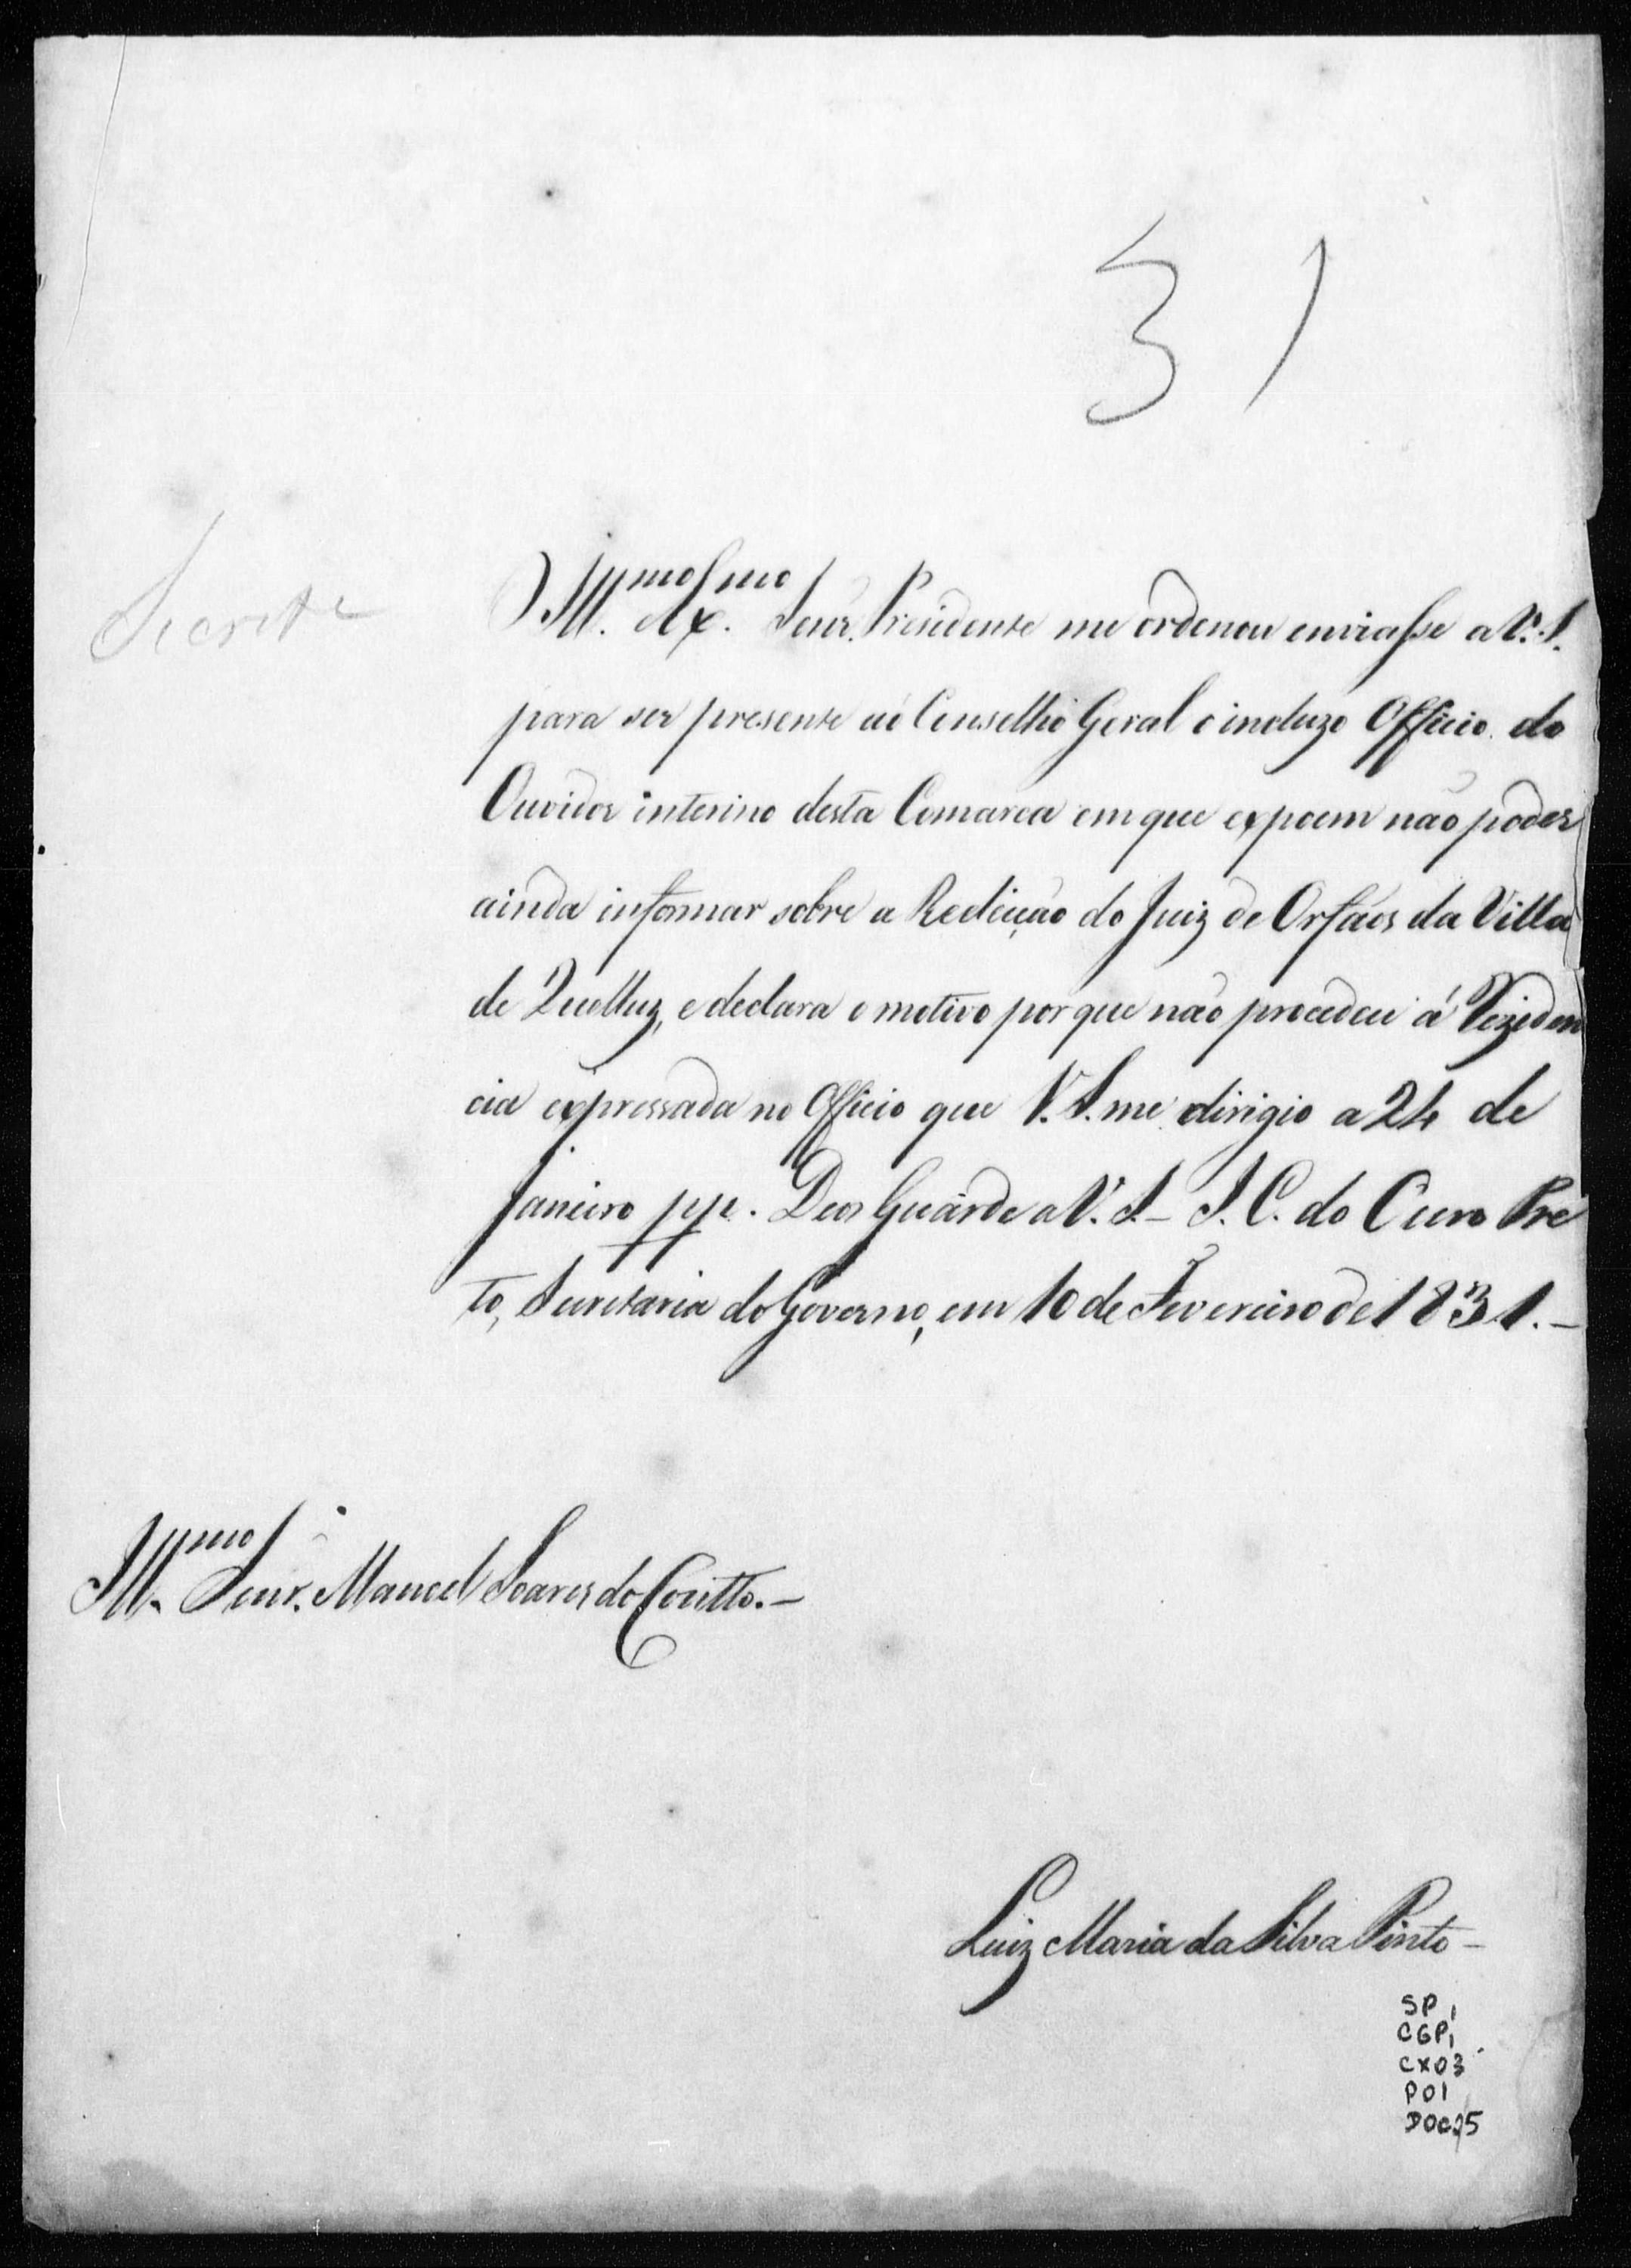 31
Secret
O Ill.mo Ex.mo Senr. Presidente me ordenou enviasse a V. S.
para ser presente ao Conselho Geral o incluzo Officio do
Ouvidor interino desta Comarca em que expoem não poder
ainda informar sobre a Redução do Juiz de Orfãos da Villa
de Quelluz, e declara o motivo por que não procedeu á Rezeden
cia expressada no Officio que V. S. me dirigio a 24 de
Janeiro pp. Deos Guarde a V. S. - I. C. do Ouro Pre
to, Secretaria do Governo, em 10 de Fevereiro de 1831. -
Ill.mo Senr. Manoel Soares do Coutto. -
Luiz Maria da Silva Pinto -
SP1
CGP1
CX03
P01
DOC25